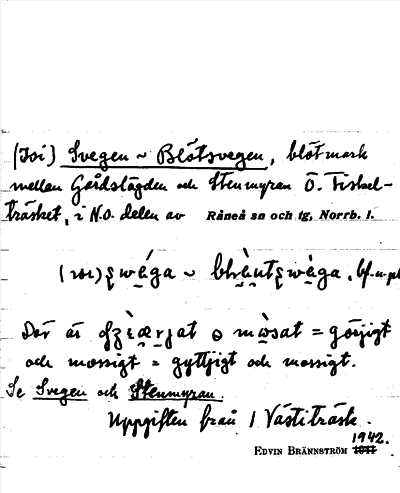 (Joi) Svegen ~ Blötsvegen, blötmark
mellan Gårdslägden och Stenmyran Ö. Fiskel-
träsket, i N.O. delen av Råneå sn och tg, Norrb. l.
bf. n. pl
Där är = görjigt
och mossigt = gyttjigt och mossigt.
Se Svegen och Stenmyran.
Uppgiften från 1 Västiträsk.
1942.
EDVIN BRÄNNSTRÖM 1941